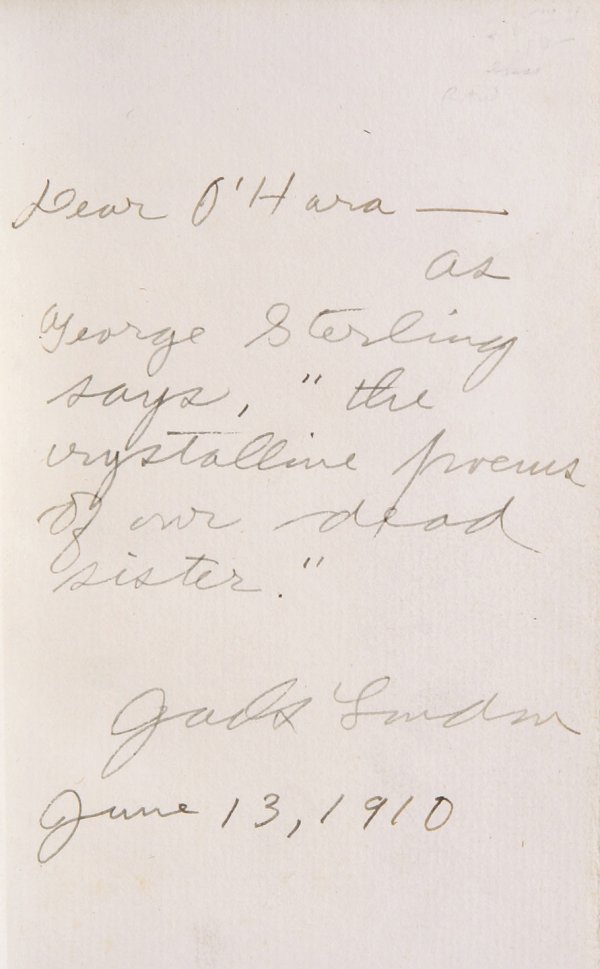 Dear O'Hara —
as
George Sterling
says, "the
crystalline poems
of our dead
sister."
Jack London
June 13, 1910